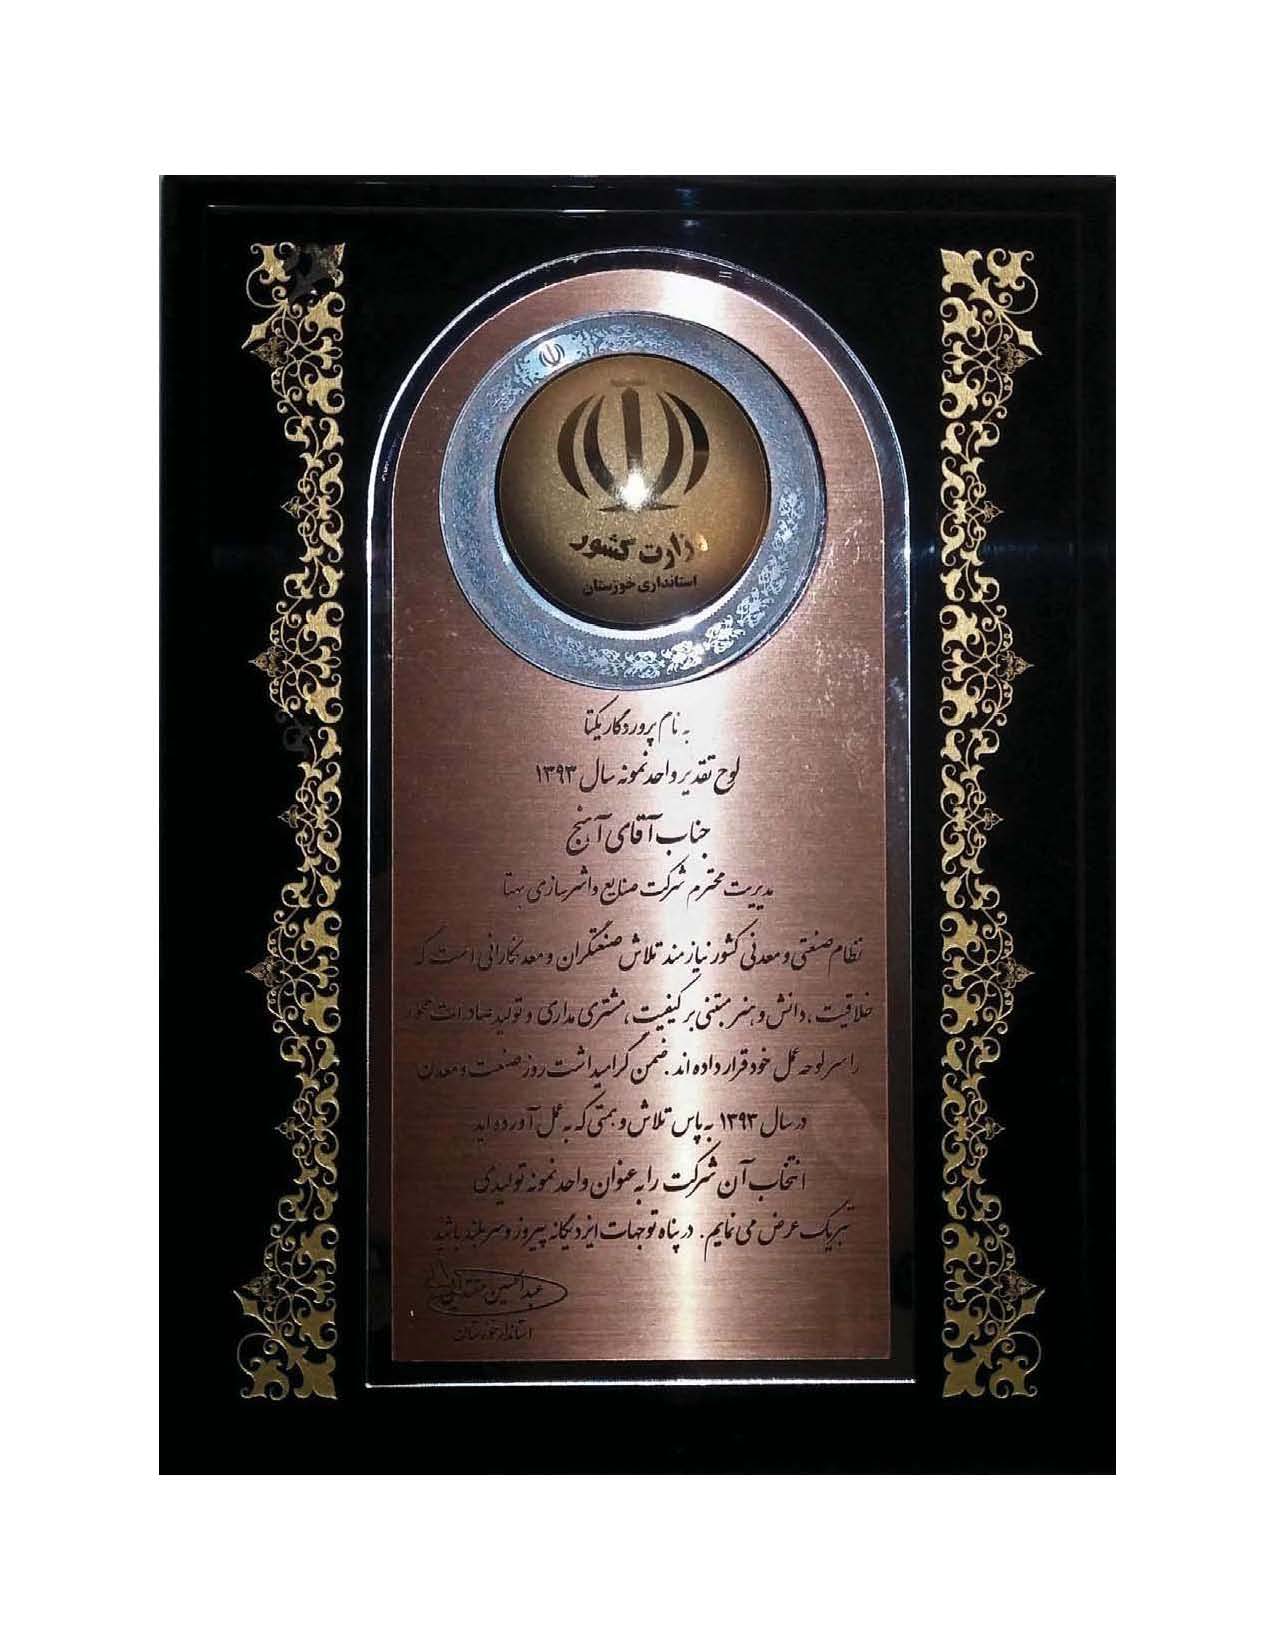 وزارت کشور
استانداری خوزستان
به نام پروردگار یکتا
لوح تقدیر واحد نمونه سال ۱۳۹۳
جناب آقای آهنج
مدیریت محترم شرکت صنایع واشر سازی بهتا
نظام صنعتی و معدنی کشور نیازمند تلاش صنعتگران و معدنکارانی است که
خلاقیت، دانش و هنر مبتنی بر کیفیت، مشتری مداری و تولید صادرات محور
را سرلوحه عمل خود قرار داده اند. ضمن گرامیداشت روز صنعت و معدن
در سال ۱۳۹۳ به پاس تلاش و همتی که به عمل آورده اید
انتخاب آن شرکت را به عنوان واحد نمونه تولیدی
تبریک عرض می نمایم. در پناه توجهات ایزد یگانه پیروز و سربلند باشید
عبدالحسین مقتدایی
استاندار خوزستان